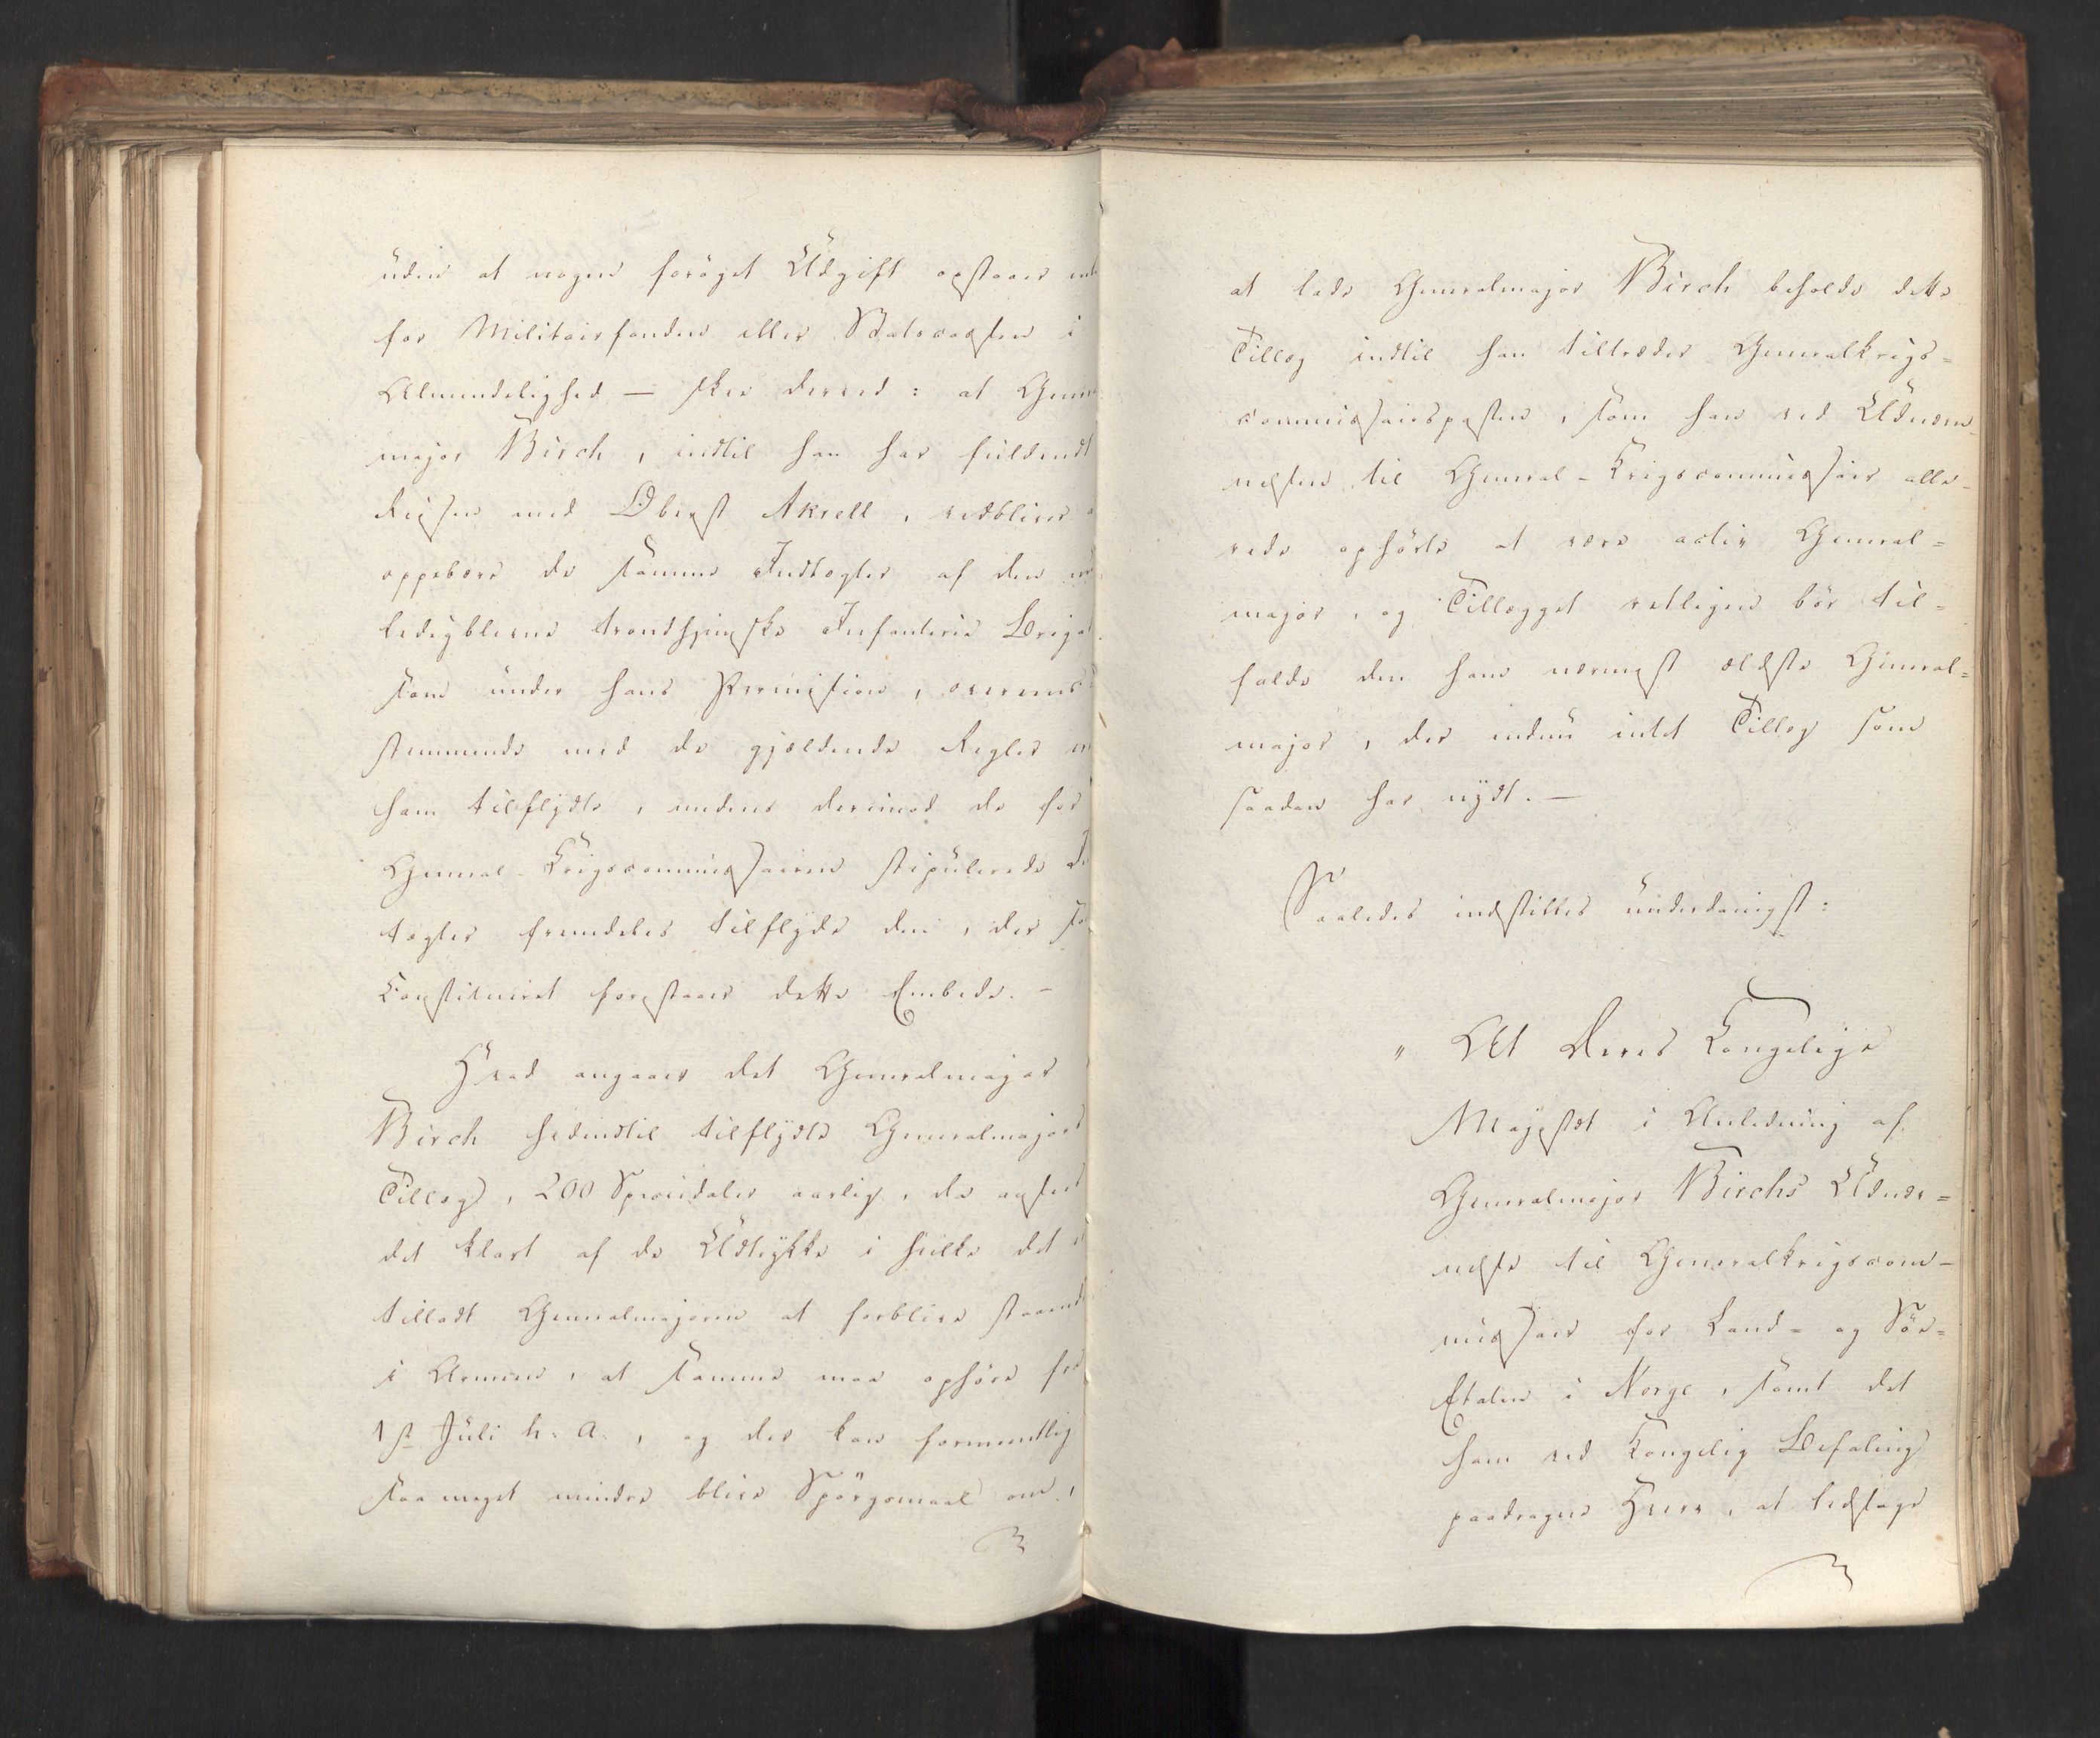 uden at nogen forøget Udgift opstaaer
for Militairfonden eller Statscassen i
Almindelighed — skee derved: at
major Birch, indtil han har fuldendt
Reisen med Oberst Akrell, vedbliver
oppebære de samme Indtægter af den
ledigblevne trondhjemske Infanterie
som under hans Permission, overens¬
stemmende med de gjældende Regler
ham tilflydte, medens derimod de for
General-Krigscommissairen stipulerede
tægter fremdeles tilflyde den, der
Constitueret forestaaer dette Embede. -
Hvad angaaer det Generalmajor
Birch hidindtil tilflydte Generalmajors
Tillæg, 200 Speciedaler aarlig, da
det klart af de Udtrykke i hvilke det
tilladt Generalmajoren at forblive staaende
i Armeen, at samme maa ophøre fra
1ste Juli h. a., og der kan formeentlig
saameget mindre blive Spørgsmaal om,
at lade Generalmajor Birch beholde dette
Tillæg indtil han tiltræder Generalkrigs=
commissairsposten, som han ved Udnæv-
nelsen til General-Krigscommissair alle-
rede ophørte at være activ General=
major, og Tillægget rettligen bør til=
falde den ham nærmest ældste General=
major, der endnu intet Tillæg som
saadan har nydt. —
Saaledes indstilles underdanigst:
" At Deres Kongelige
Majestæt i Anledning af
Generalmajor Birchs Udnæv=
nelse til Generalkrigscom-
missair for Land- og Søe=
Etaten i Norge, samt det
ham ved Kongelig Befaling
paadragne Hverv, at ledsage